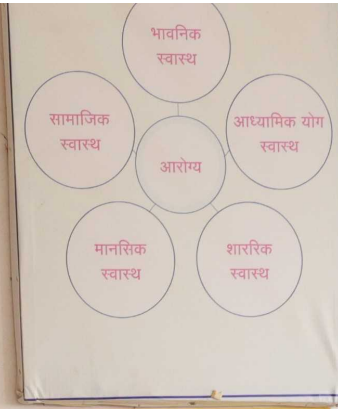 भावनिक
स्वास्थ
सामाजिक
स्वास्थ
आध्यामिक योग
स्वास्थ
आरोग्य
मानसिक
स्वास्थ
शाररिक
स्वास्थ